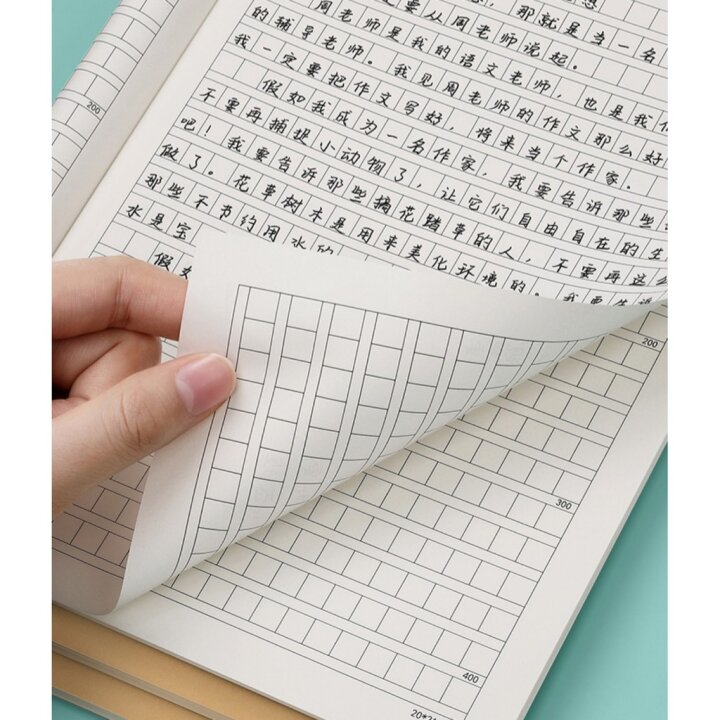 那就是当一名
要从周老师说起。
周老师是我的语文老师，也是我们
的辅导老师。我见周老师的作文那么好
我一定要把作文写好，将来当个作家。
假如我成为一名作家，我要告诉那些
不要再捕捉小动物了，让它们自由自在的生
吧！我要告诉那些摘花踏草的人，不要再这么
做了。花草树木是用来美化环境的。我要告诉
那些不节约用水的
水是宝
假如
200
200
300
400